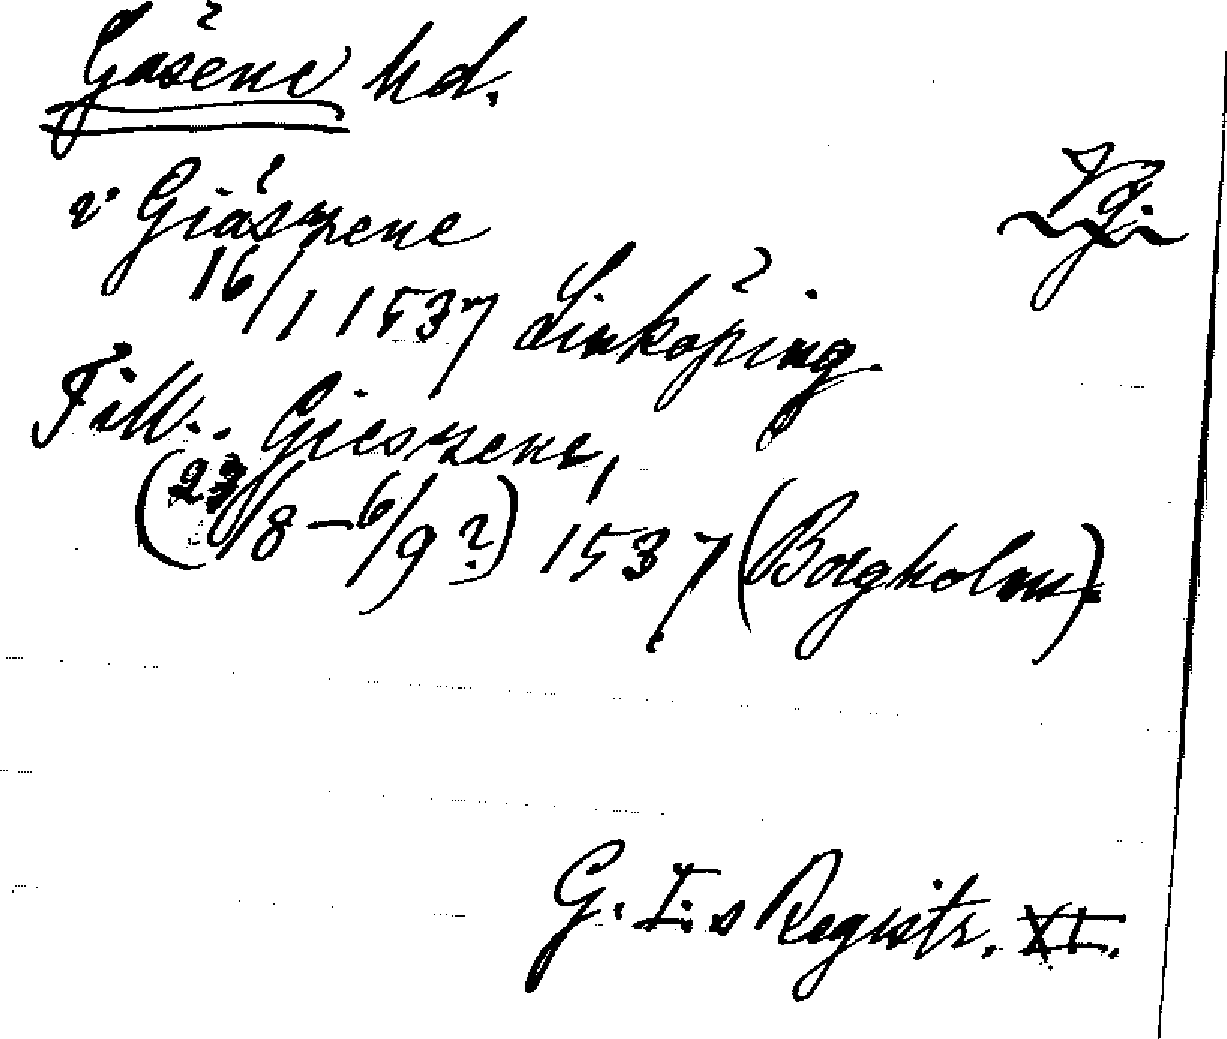 Gäsene hd.
Vg.
v Giäszene
16/1 1537 Linköping.
Till.. Gieszene,
(23/8 – 6/9?) 1537 (Borgholm)
G. I.s Registr. XI.